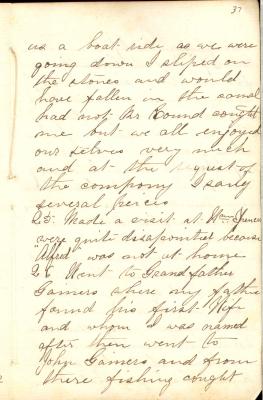 37
us a boat ride as we were
going down I sliped on
the stones and would
have fallen in the canal
had not Mr Bound caught
me but we all enjoyed
our selves very much
and at the request of
the company I sang
several peices
25 Made a visit at Wm Spencer
were quite disapointed because
"Alfred" was not at home
26 Went to Grandfather
Gainers where my father
found his first Wife
and whom I was named
after then went to
John Gainers and from
there fishing caught